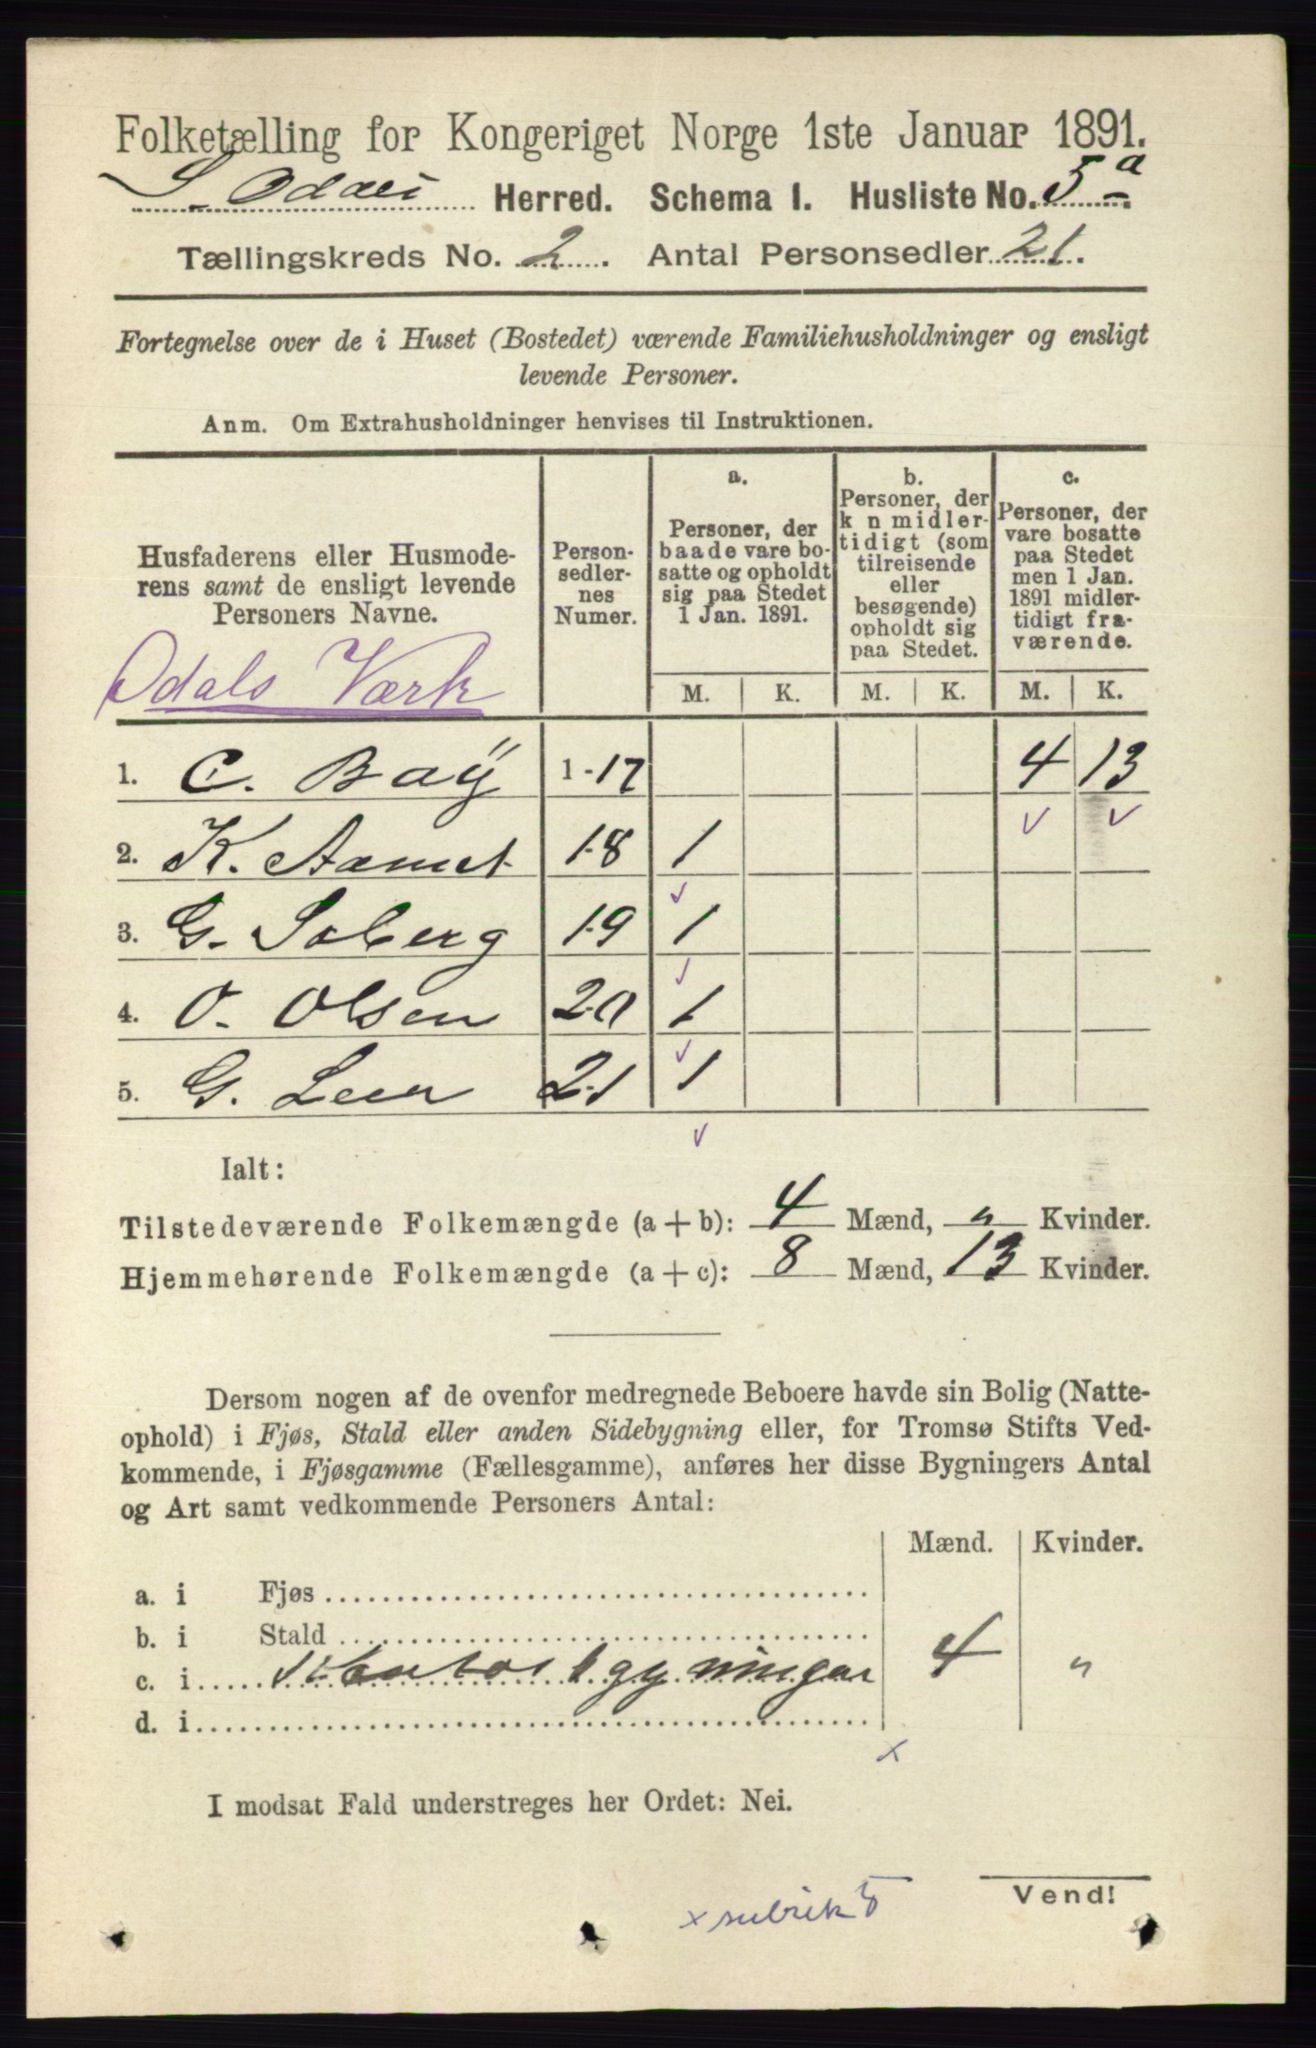 Folketælling for Kongeriget Norge 1ste Januar 1891.
S. Odalen Herred. Schema I. Husliste No. 5 a.
Tællingskreds No. 2. Antal Personsedler 21.
Fortegnelse over de i Huset (Bostedet) værende Familiehusholdninger og ensligt
levende Personer.
Anm. Om Extrahusholdninger henvises til Instruktionen.
Husfaderens eller Husmode-
rens samt de ensligt levende
Personers Navne.
Person-
sedler-
nes
Numer.
a.
Personer, der
baade vare bo-
satte og opholdt
sig paa Stedet
1 Jan. 1891.
b.
Personer, der
k n midler-
tidigt (som
tilreisende
eller
besøgende)
opholdt sig
paa Stedet.
c.
Personer, der
vare bosatte
paa Stedet
men 1 Jan.
1891 midler-
tidigt fra-
værende.
Odals Værk
M. K. M. K. M. K.
1. C. Baÿ 1-17 4 13
2. K. 18 1
3. G. Solberg 19 1
4. O. Olsen 20 1
5. G. Leer 21 1
Ialt:
Tilstedeværende Folkemængde (a + b): 4 Mænd, „ Kvinder.
Hjemmehørende Folkemængde (a + c): 8 Mænd, 13 Kvinder.
Dersom nogen af de ovenfor medregnede Beboere havde sin Bolig (Natte-
ophold) i Fjøs, Stald eller anden Sidebygning eller, for Tromsø Stifts Ved-
kommende, i Fjøsgamme (Fællesgamme), anføres her disse Bygningers Antal
og Art samt vedkommende Personers Antal:
Mænd. Kvinder.
a. i Fjøs
b. i Stald
c. i bygninger 4 „
d. i
x
I modsat Fald understreges her Ordet: Nei.
x rubrik 5
Vend!